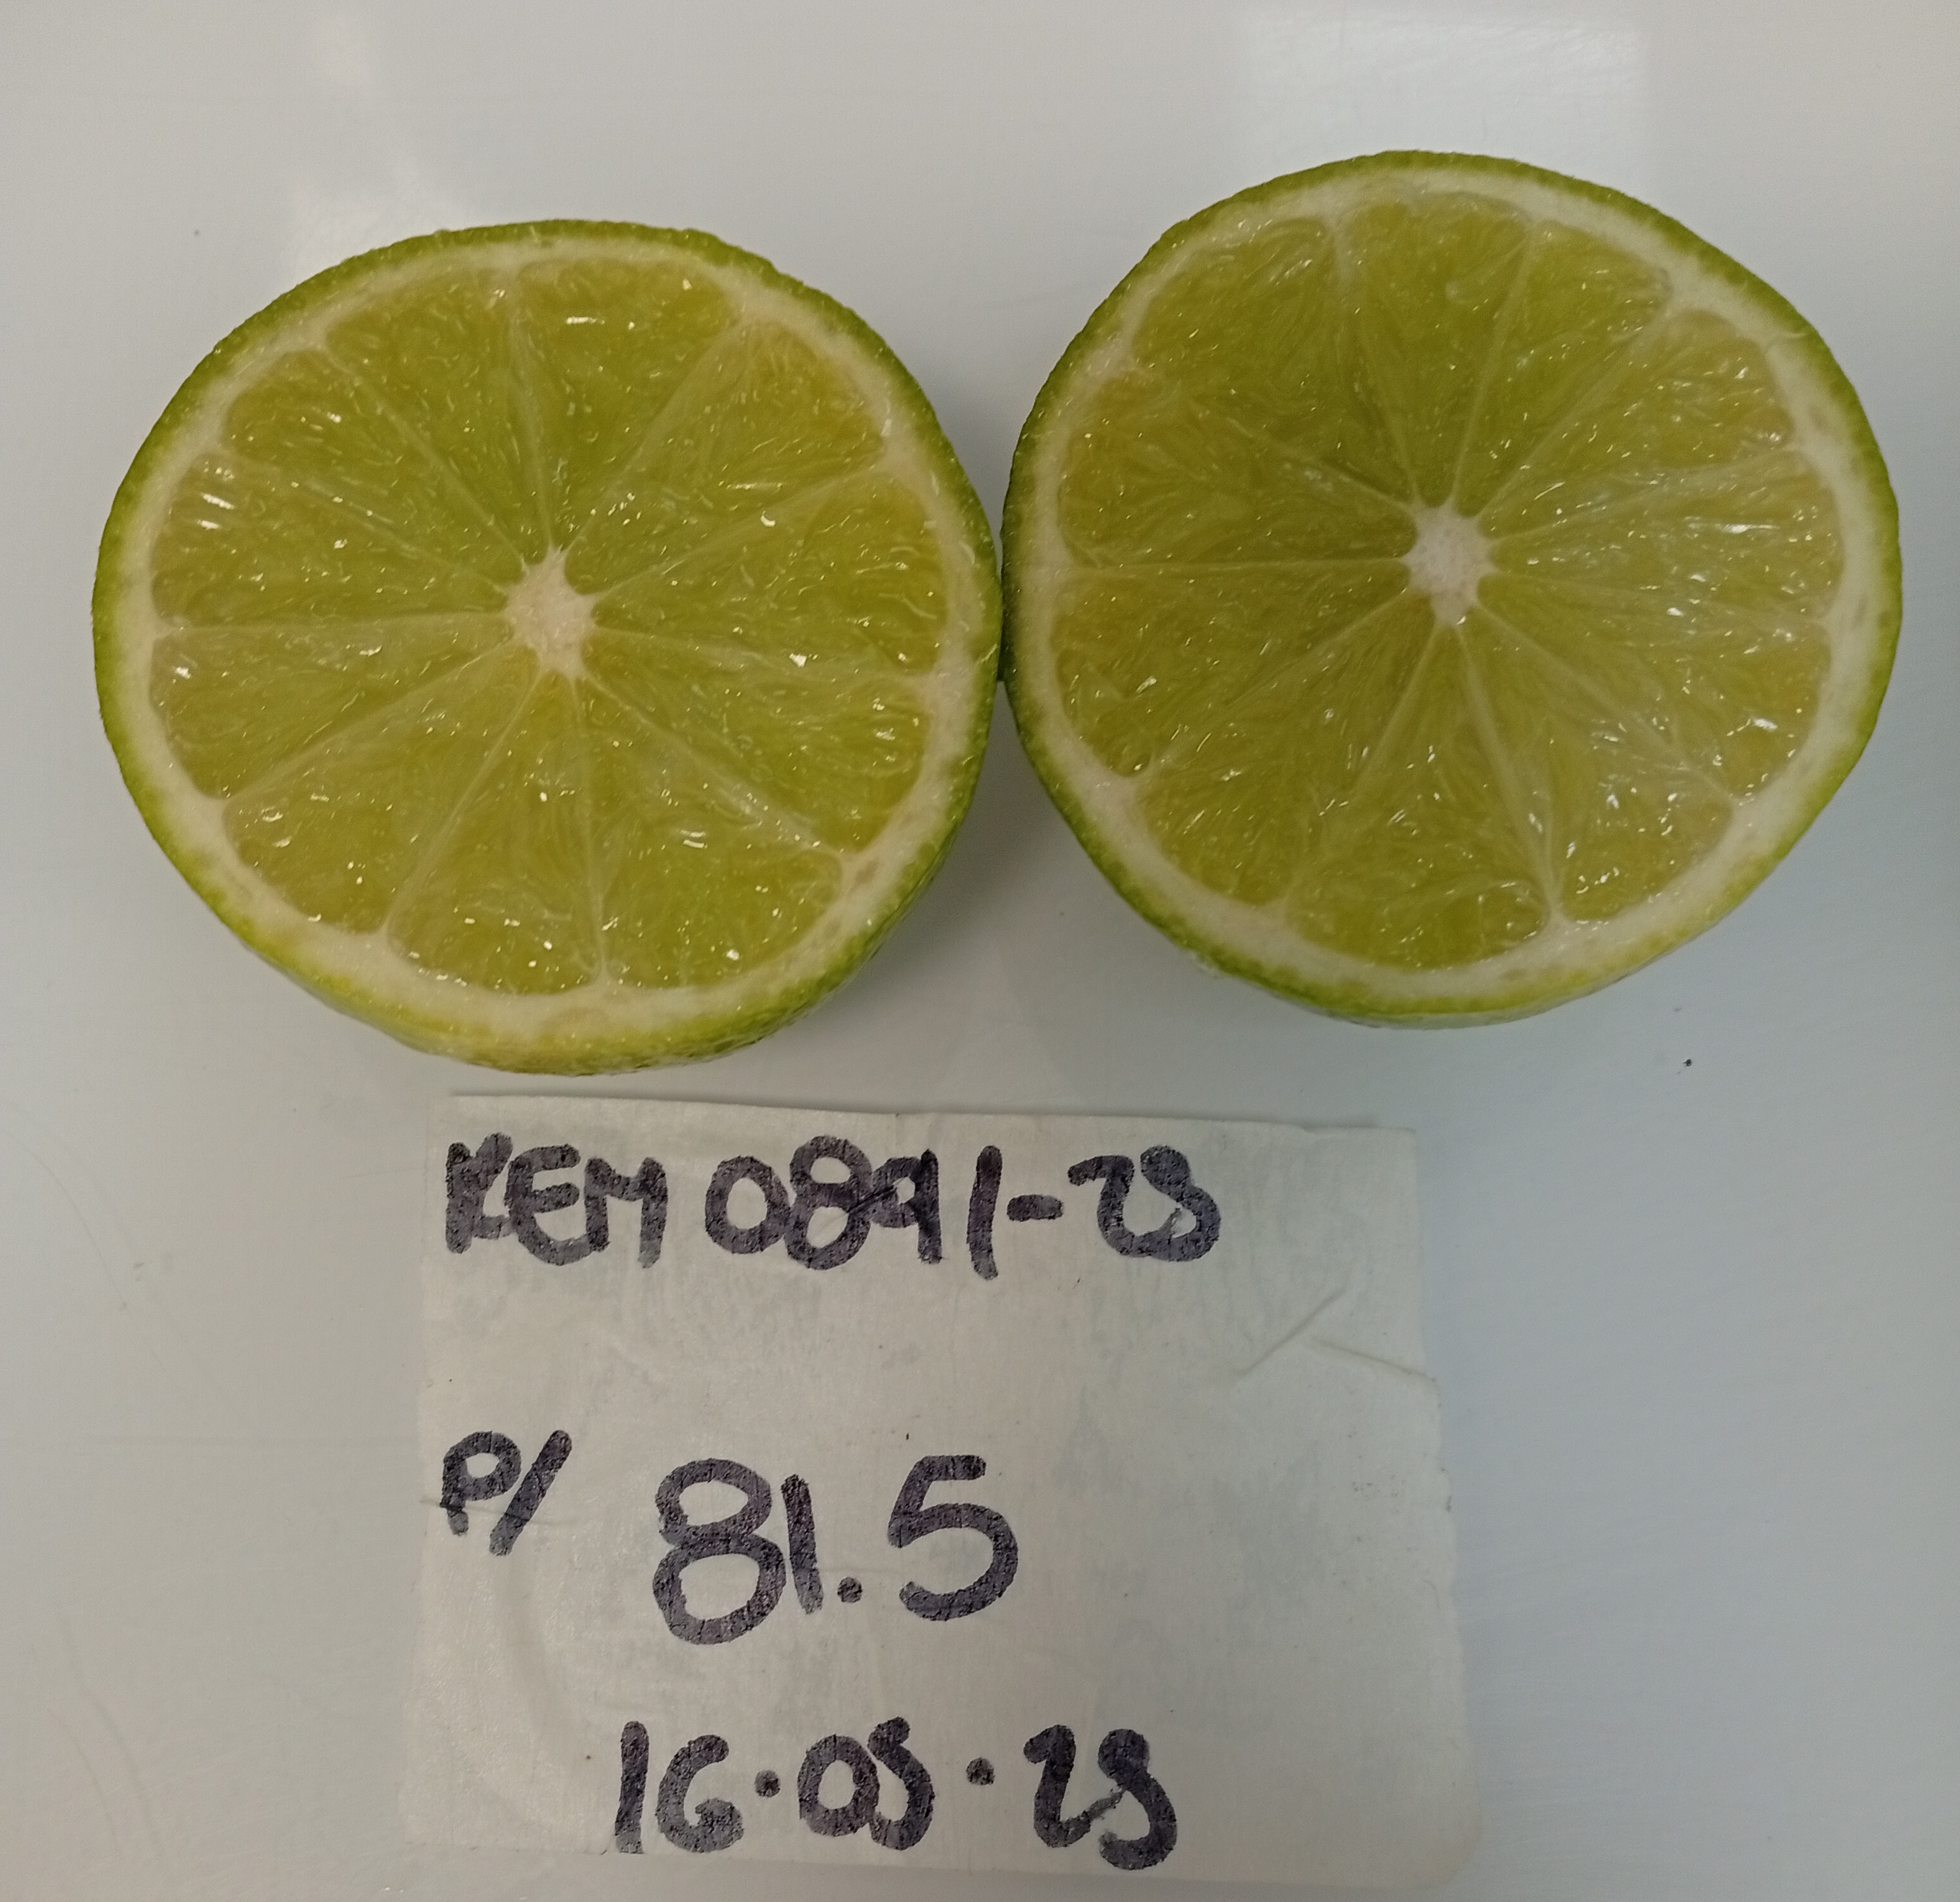 KEM 0891-23
P/ 81.5
16.03.23